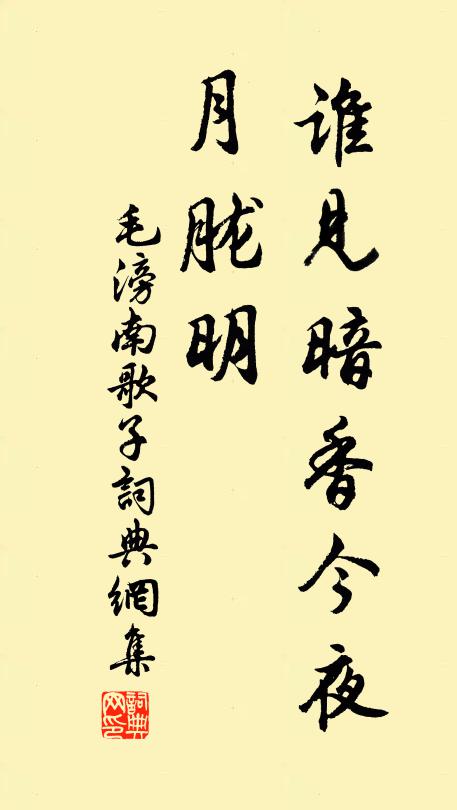 谁见暗香今夜
月胧明
毛滂南歌子詞典網集
詞典
网印